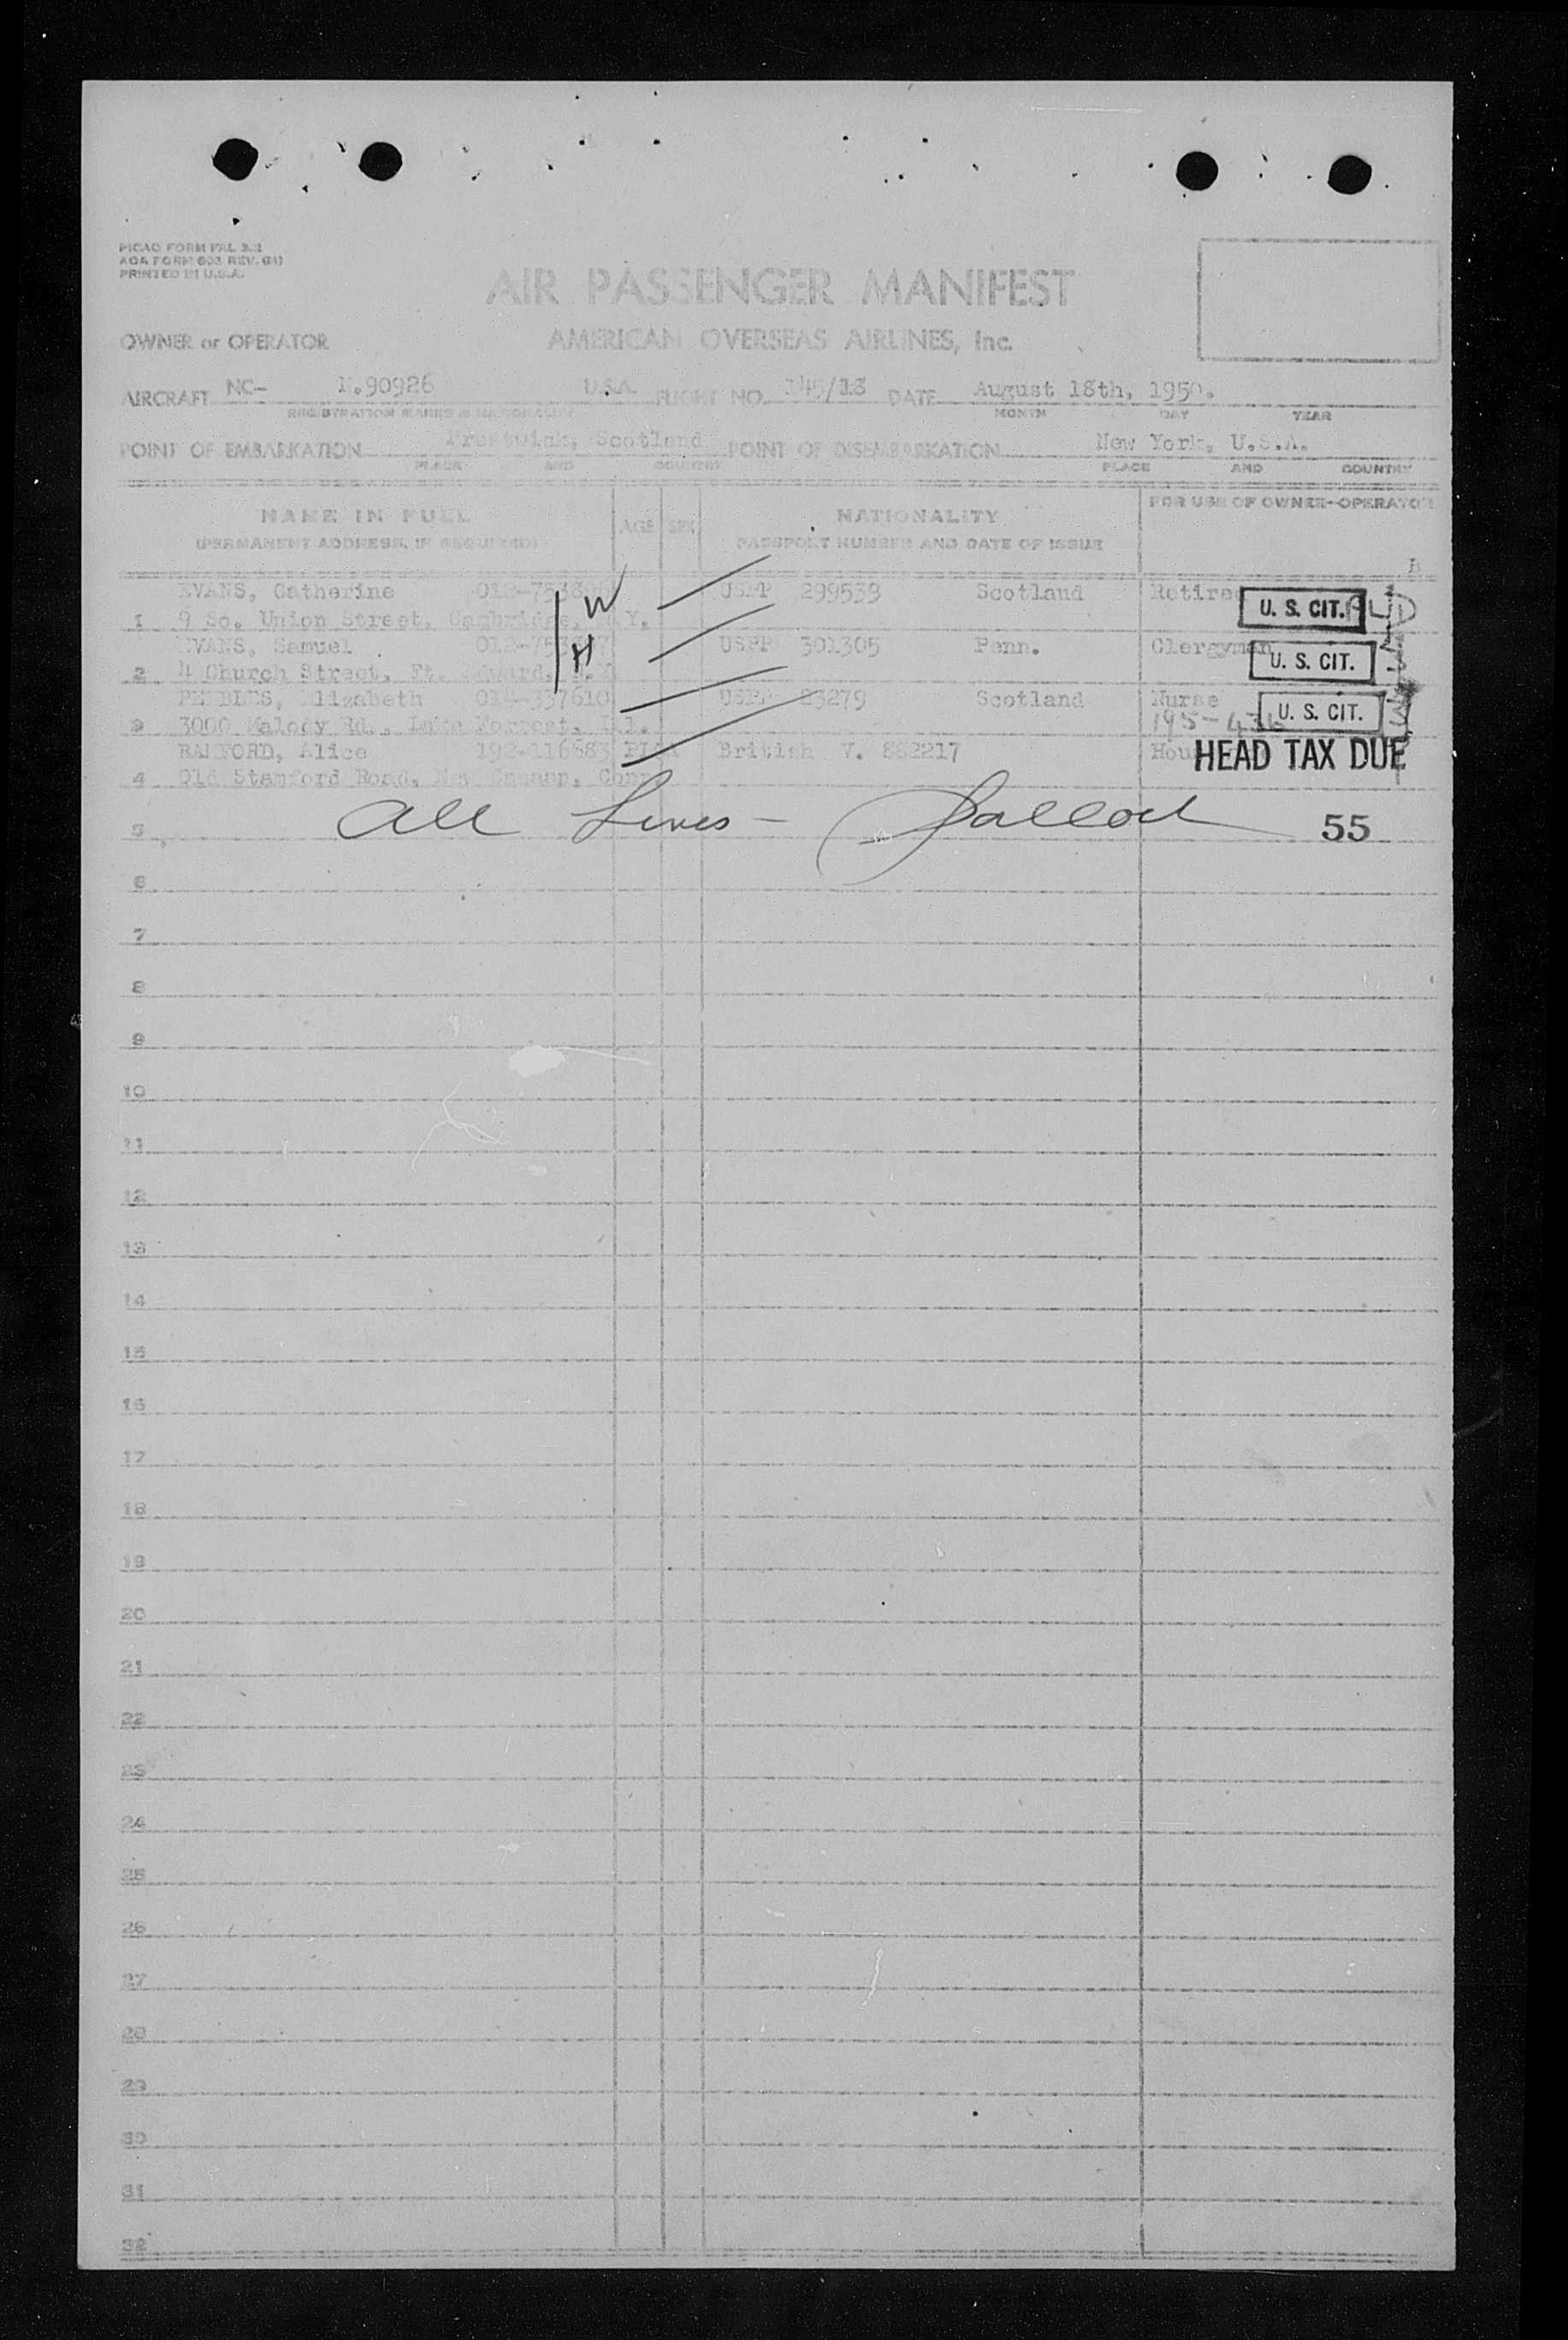 PICAO FORM FAL 3.2
AOA FORM 603 REV.
PRINTED IN U.S.A.
AIR PASSENGER MANIFEST
OWNER or OPERATOR AMERICAN OVERSEAS AIRLINES, Inc.
AIRCRAFT NC- N.90926 U.S.A. FLIGHT NO. DATE August 18th, 1950.
REGISTRATION MARKS & NATIONALITY MONTH DAY YEAR
POINT OF EMBARKATION Prestwick, Scotland POINT OF DISEMBARKATION New York, U.S.A.
PLACE AND COUNTRY PLACE AND COUNTRY
NAME IN FULL AGE SEX NATIONALITY FOR USE OF OWNER-OPERATOR
(PERMANENT ADDRESS, IF REQUIRED) PASSPORT NUMBER AND DATE OF ISSUE
B
EVANS, Catherine W USPP 299539 Scotland Retired U. S. CIT.
1 9 So. Union Street, Cambridge, N.Y.
EVANS, Samuel H USPP 301305 Penn. Clergyman U. S. CIT.
2 4 Church Street, Ft. Edward, N.Y.
PEEBLES, Elizabeth 014-357610 USPP 23279 Scotland Nurse U. S. CIT.
3 3000 Malody Rd., Lake Forrest, Ill.
BAMFORD, Alice 192-116683 British V. 882217 HEAD TAX DUE
4 Old Stamford Road, New Canaan, Conn
5 All Lines - 55
6
7
8
9
10
11
12
13
14
15
16
17
18
19
20
21
22
23
24
25
26
27
28
29
30
31
32